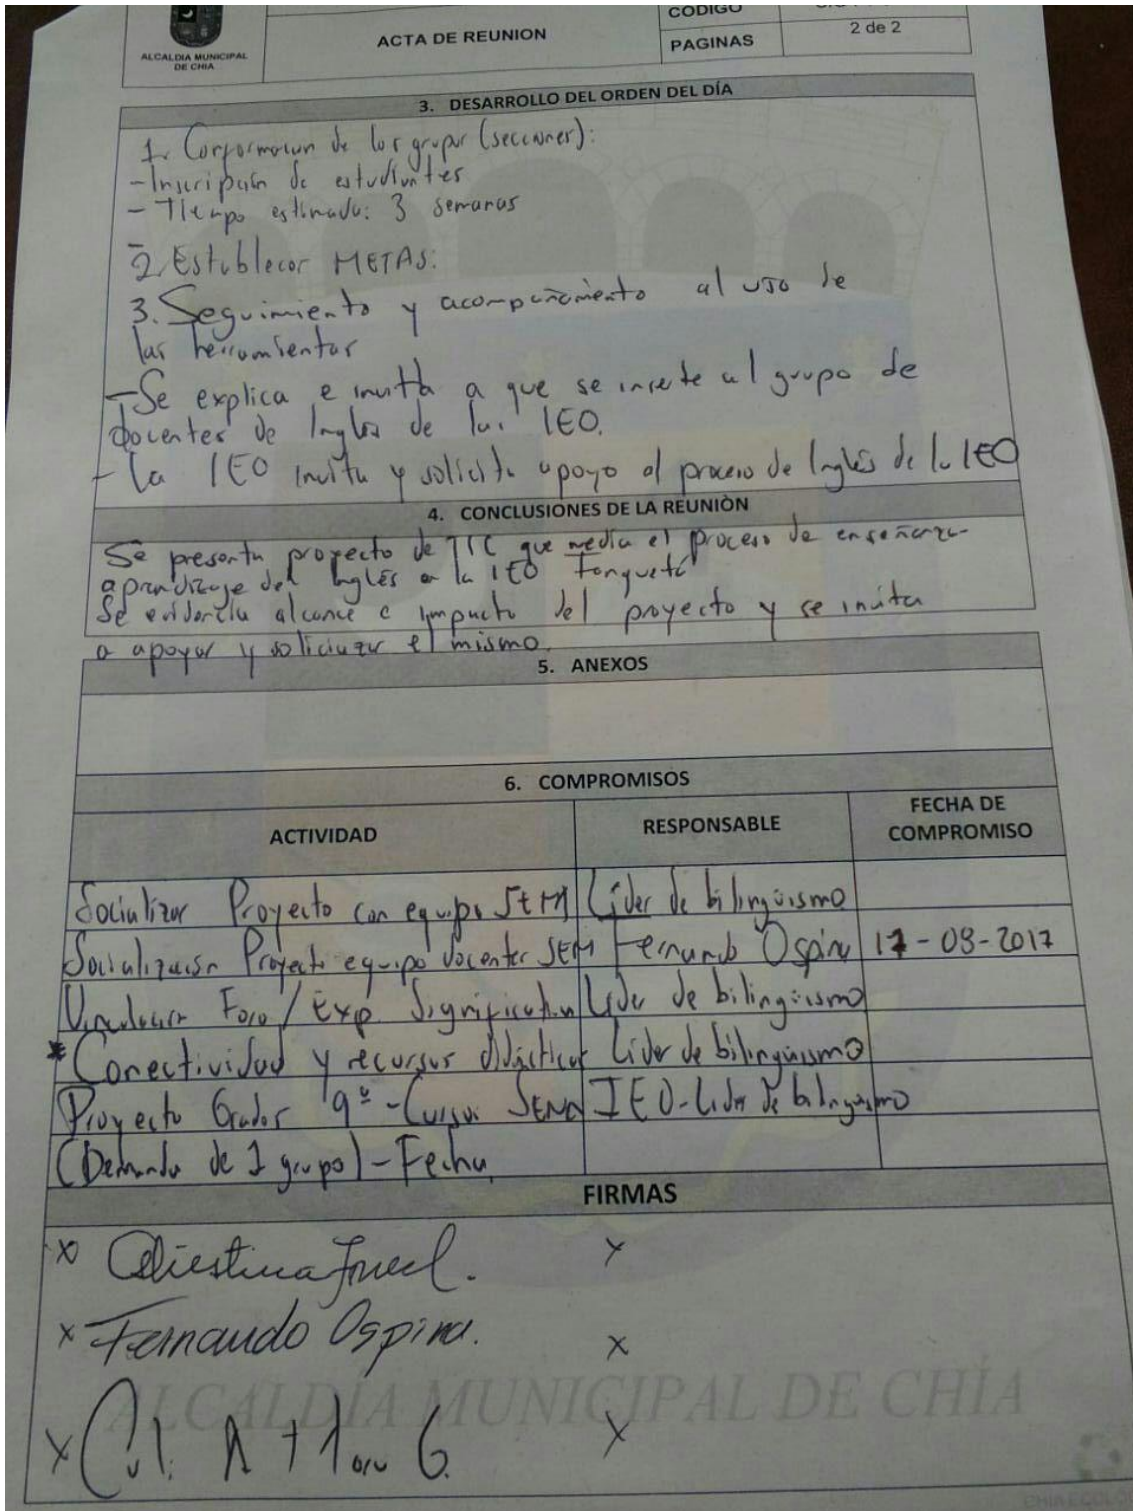 CODIGO
ALCALDIA MUNICIPAL
DE CHIA
ACTA DE REUNION
PAGINAS
2 de 2
3. DESARROLLO DEL ORDEN DEL DÍA
1. Conformacion de los grupos (secciones):
- Inscripción de estudiantes
- Tiempo estimado: 3 semanas
2. Establecer METAS:
3. Seguimiento y acompañamiento al uso de
las herramientas
- Se explica e invita a que se inserte al grupo de
docentes de Inglés de las IEO.
- La IEO invita y solicita apoyo al proceso de Inglés de la IEO
4. CONCLUSIONES DE LA REUNIÒN
Se presenta proyecto de TIC que media el proceso de enseñanza-
aprendizaje del Inglés en la IEO Fonquetá
Se evidencia alcance e impacto del proyecto y se invita
a apoyar y el mismo.
5. ANEXOS
6. COMPROMISOS
ACTIVIDAD
RESPONSABLE
FECHA DE
COMPROMISO
Socializar Proyecto con equipo SEM Líder de bilingüismo
Socialización Proyecto equipo docentes SEM Fernando Ospina 17-08-2017
Vinculación Foro / Exp. Significativa Líder de bilingüismo
* Conectividad y recursos didácticos Líder de bilingüismo
Proyecto Grados 9º - Cursos SENA IEO-Lider de bilingüismo
(Demanda de 1 grupo) - Fecha
FIRMAS
x x
x Fernando Ospina. x
x G. x
ALCALDIA MUNICIPAL DE CHÍA